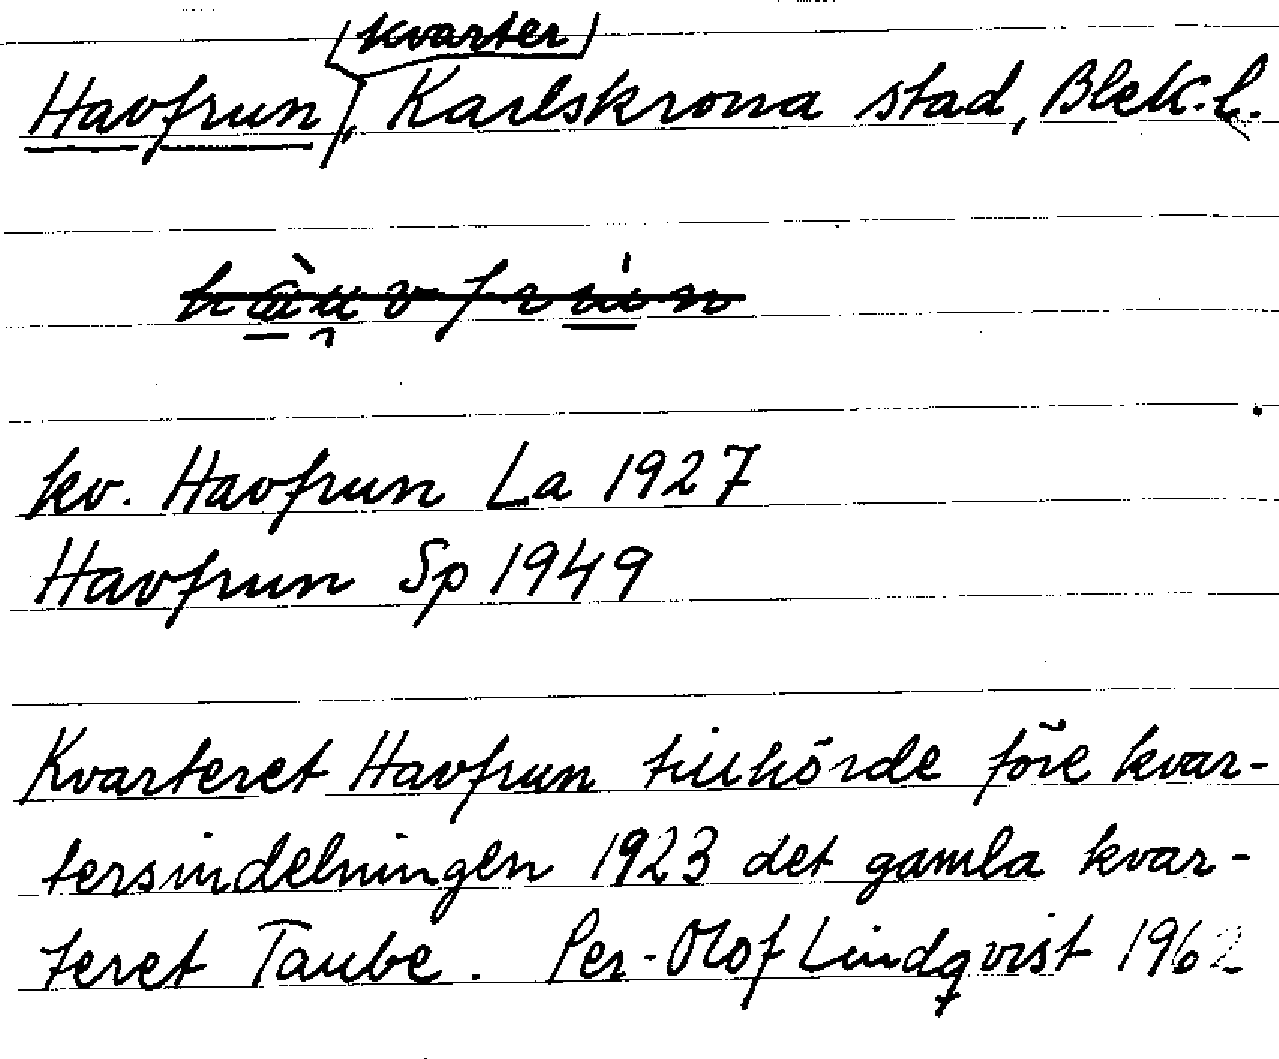 (kvarter)
Havfrun, Karlskrona stad, Blek. l.
kv. Havfrun La 1927
Havfrun Sp 1949
Kvarteret Havfrun tillhörde före kvar-
tersindelningen 1923 det gamla kvar-
teret Taube. Per-Olof Lindqvist 1962